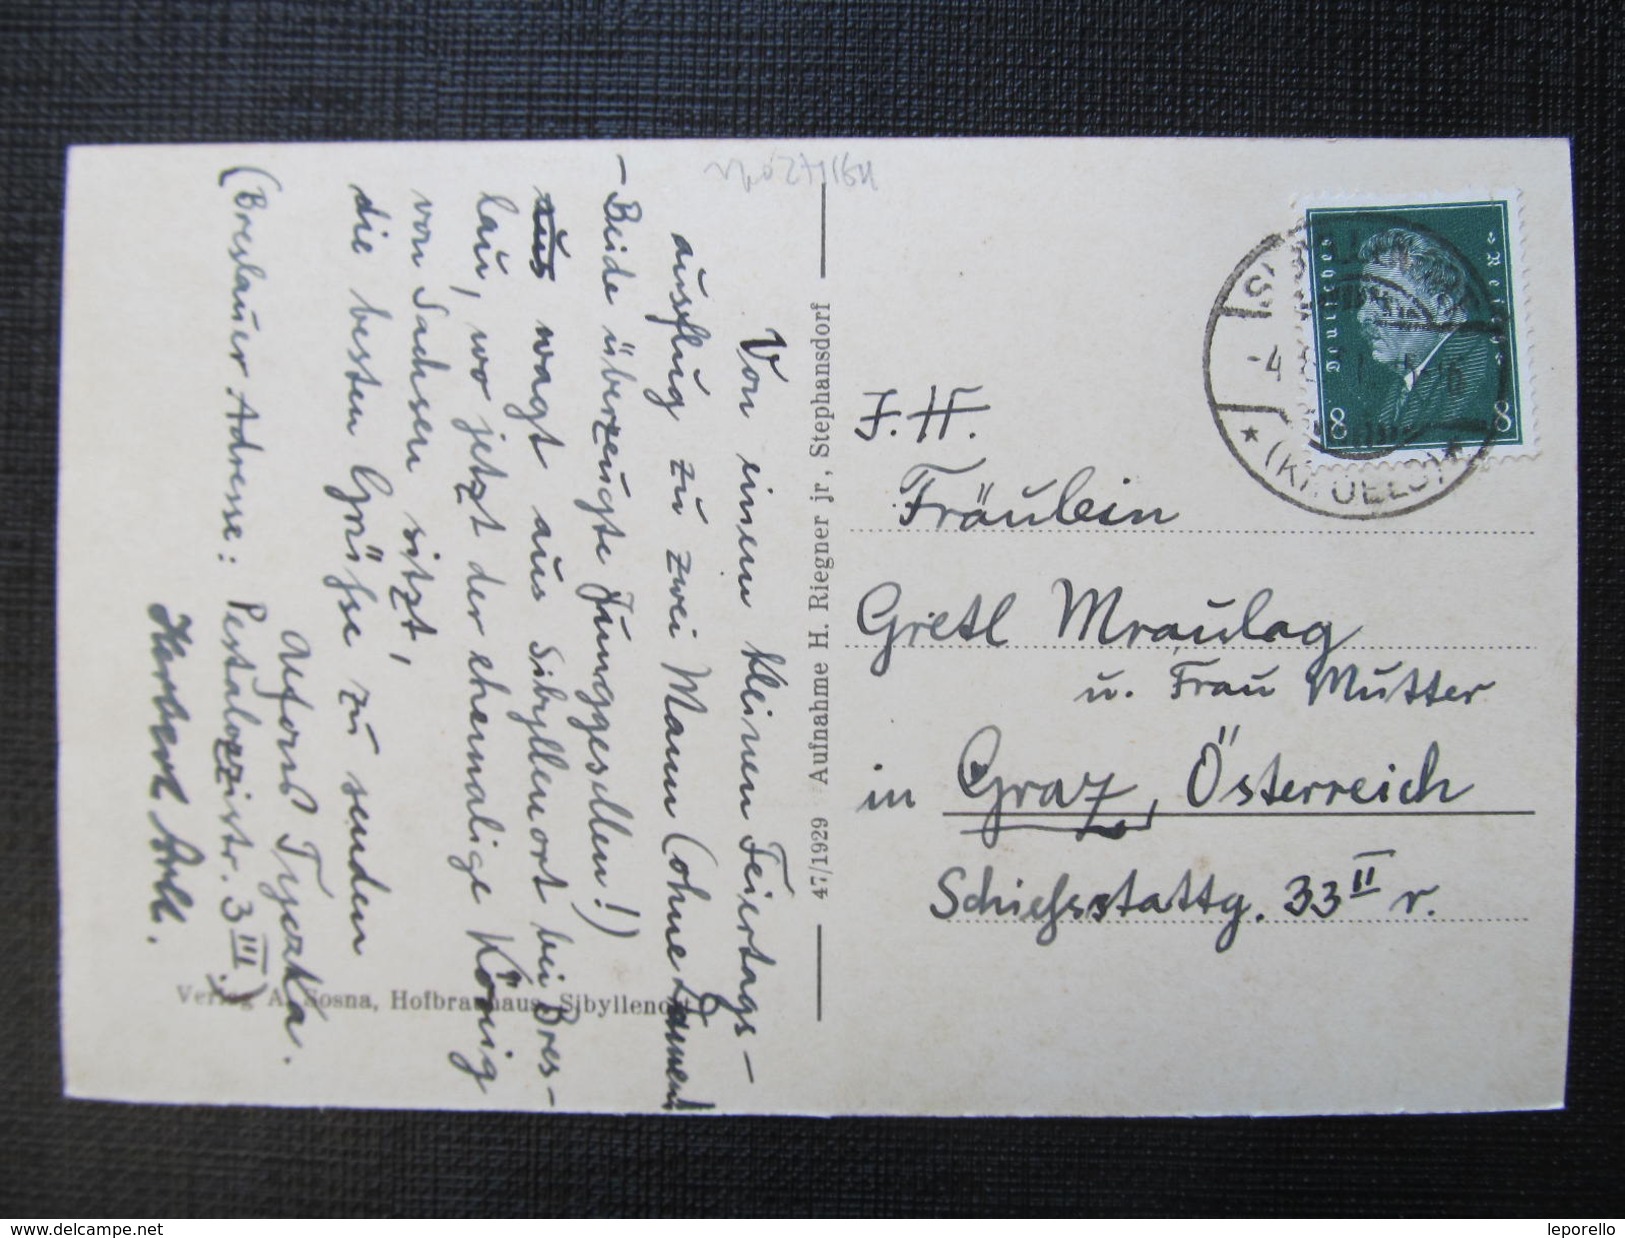 Von einem kleinen Feiertags-
ausflug zu zwei Mann (ohne Damen!
- Beide überzeugte Junggesellen!)
wagt aus Sibyllenort bei Bres-
lau, wo jetzt der ehemalige König
von Sachsen sitzt,
die besten Grüsse zu senden
Alfons Tyczka.
(Breslauer Adresse: Pestalozzistr. 3 III)
Herbert
Verlag A. Sosna, Hofbrauhaus, Sibyllenort
47/1929 Aufnahme H. Riegner jr., Stephansdorf
Deutsches Reich
8 8
-4
(KR. OELS)
J. H.
Fräulein
Gretl Mraulag
u. Frau Mutter
in Graz, Österreich
Schiessstattg. 33 II r.
www.delcampe.net
leporello